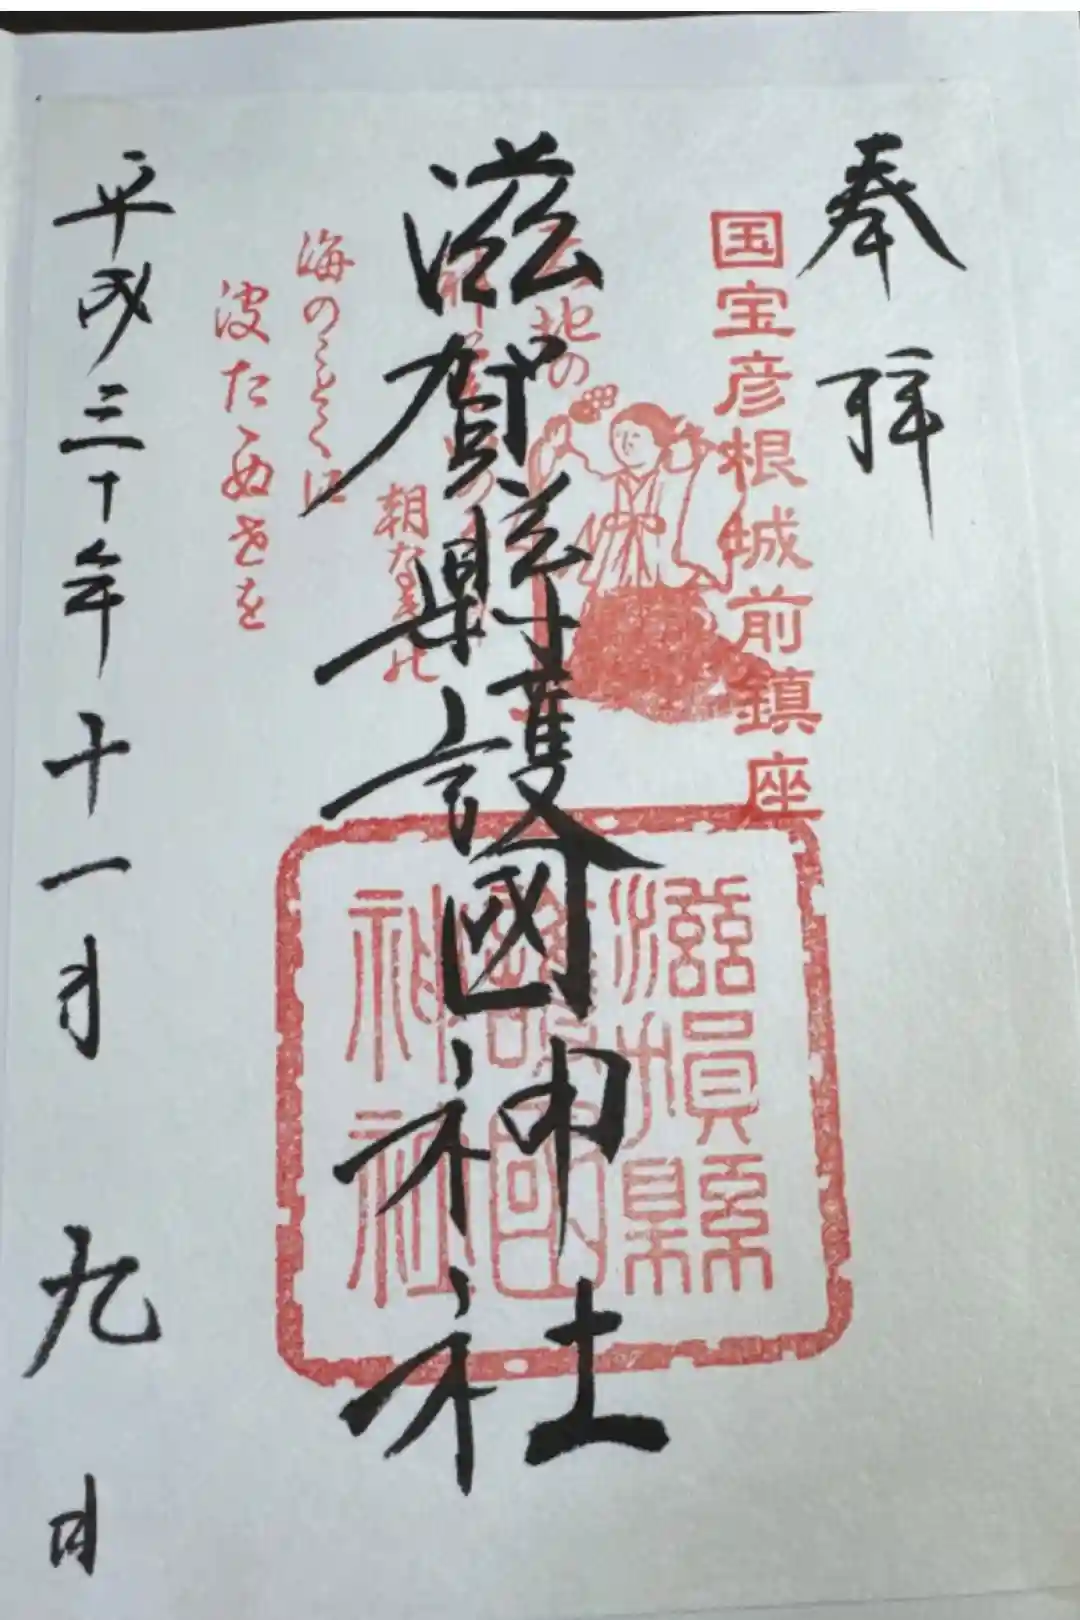 奉拝
国宝彦根城前鎮座
滋賀縣護國神社
朝な
海のことくに
波たゝぬせを
滋賀縣
護國
神社
平成三十年十一月九日